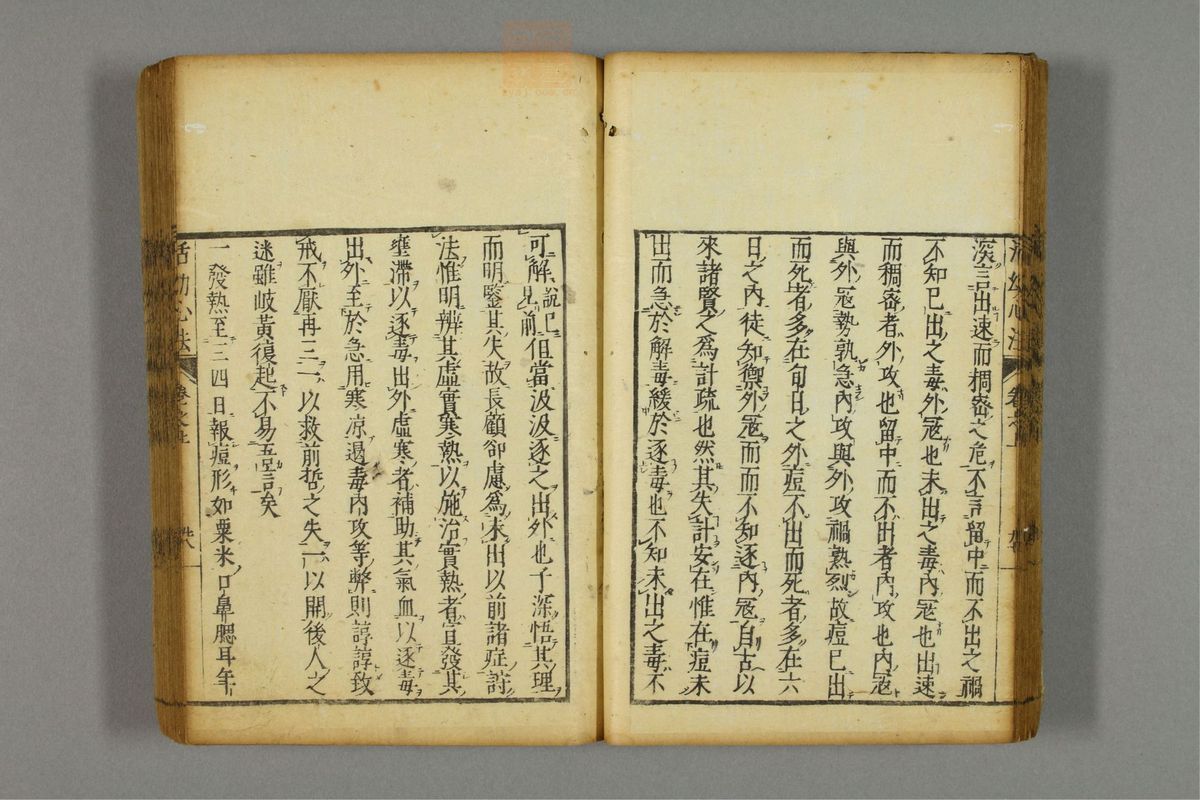 深言出速而稠密之危不言留中而不出之禍
不知已出之毒外冦也未出之毒内冦也出速
而稠密者外攻也留中而不出者内攻也内冦
與外冦勢孰急内攻與外攻禍孰烈故痘已出
而死者多在旬日之外痘不出而死者多在六
日之内徒知禦外冦而不知逐内冦自古以
來諸賢之為計疏也然其失計安在惟在痘未
出而急於解毒緩於逐毒也不知未出之毒不
可解說已見前但當汲汲逐之出外也予深悟其理
而明鑒其失故長顧卻慮為未出以前諸症討
法惟明辨其虛實寒熱以施治實熱者宣發其
壅滯以逐毒出外虛寒者補助其氣血以逐毒
出外至於急用寒凉遏毒内攻等弊則諄諄致
戒不厭再三一以救前哲之失一以開後人之
迷雖岐黃復起不易吾言矣
一發熱至三四日報痘形如粟米口鼻腮耳年
活幼心法
卷之上